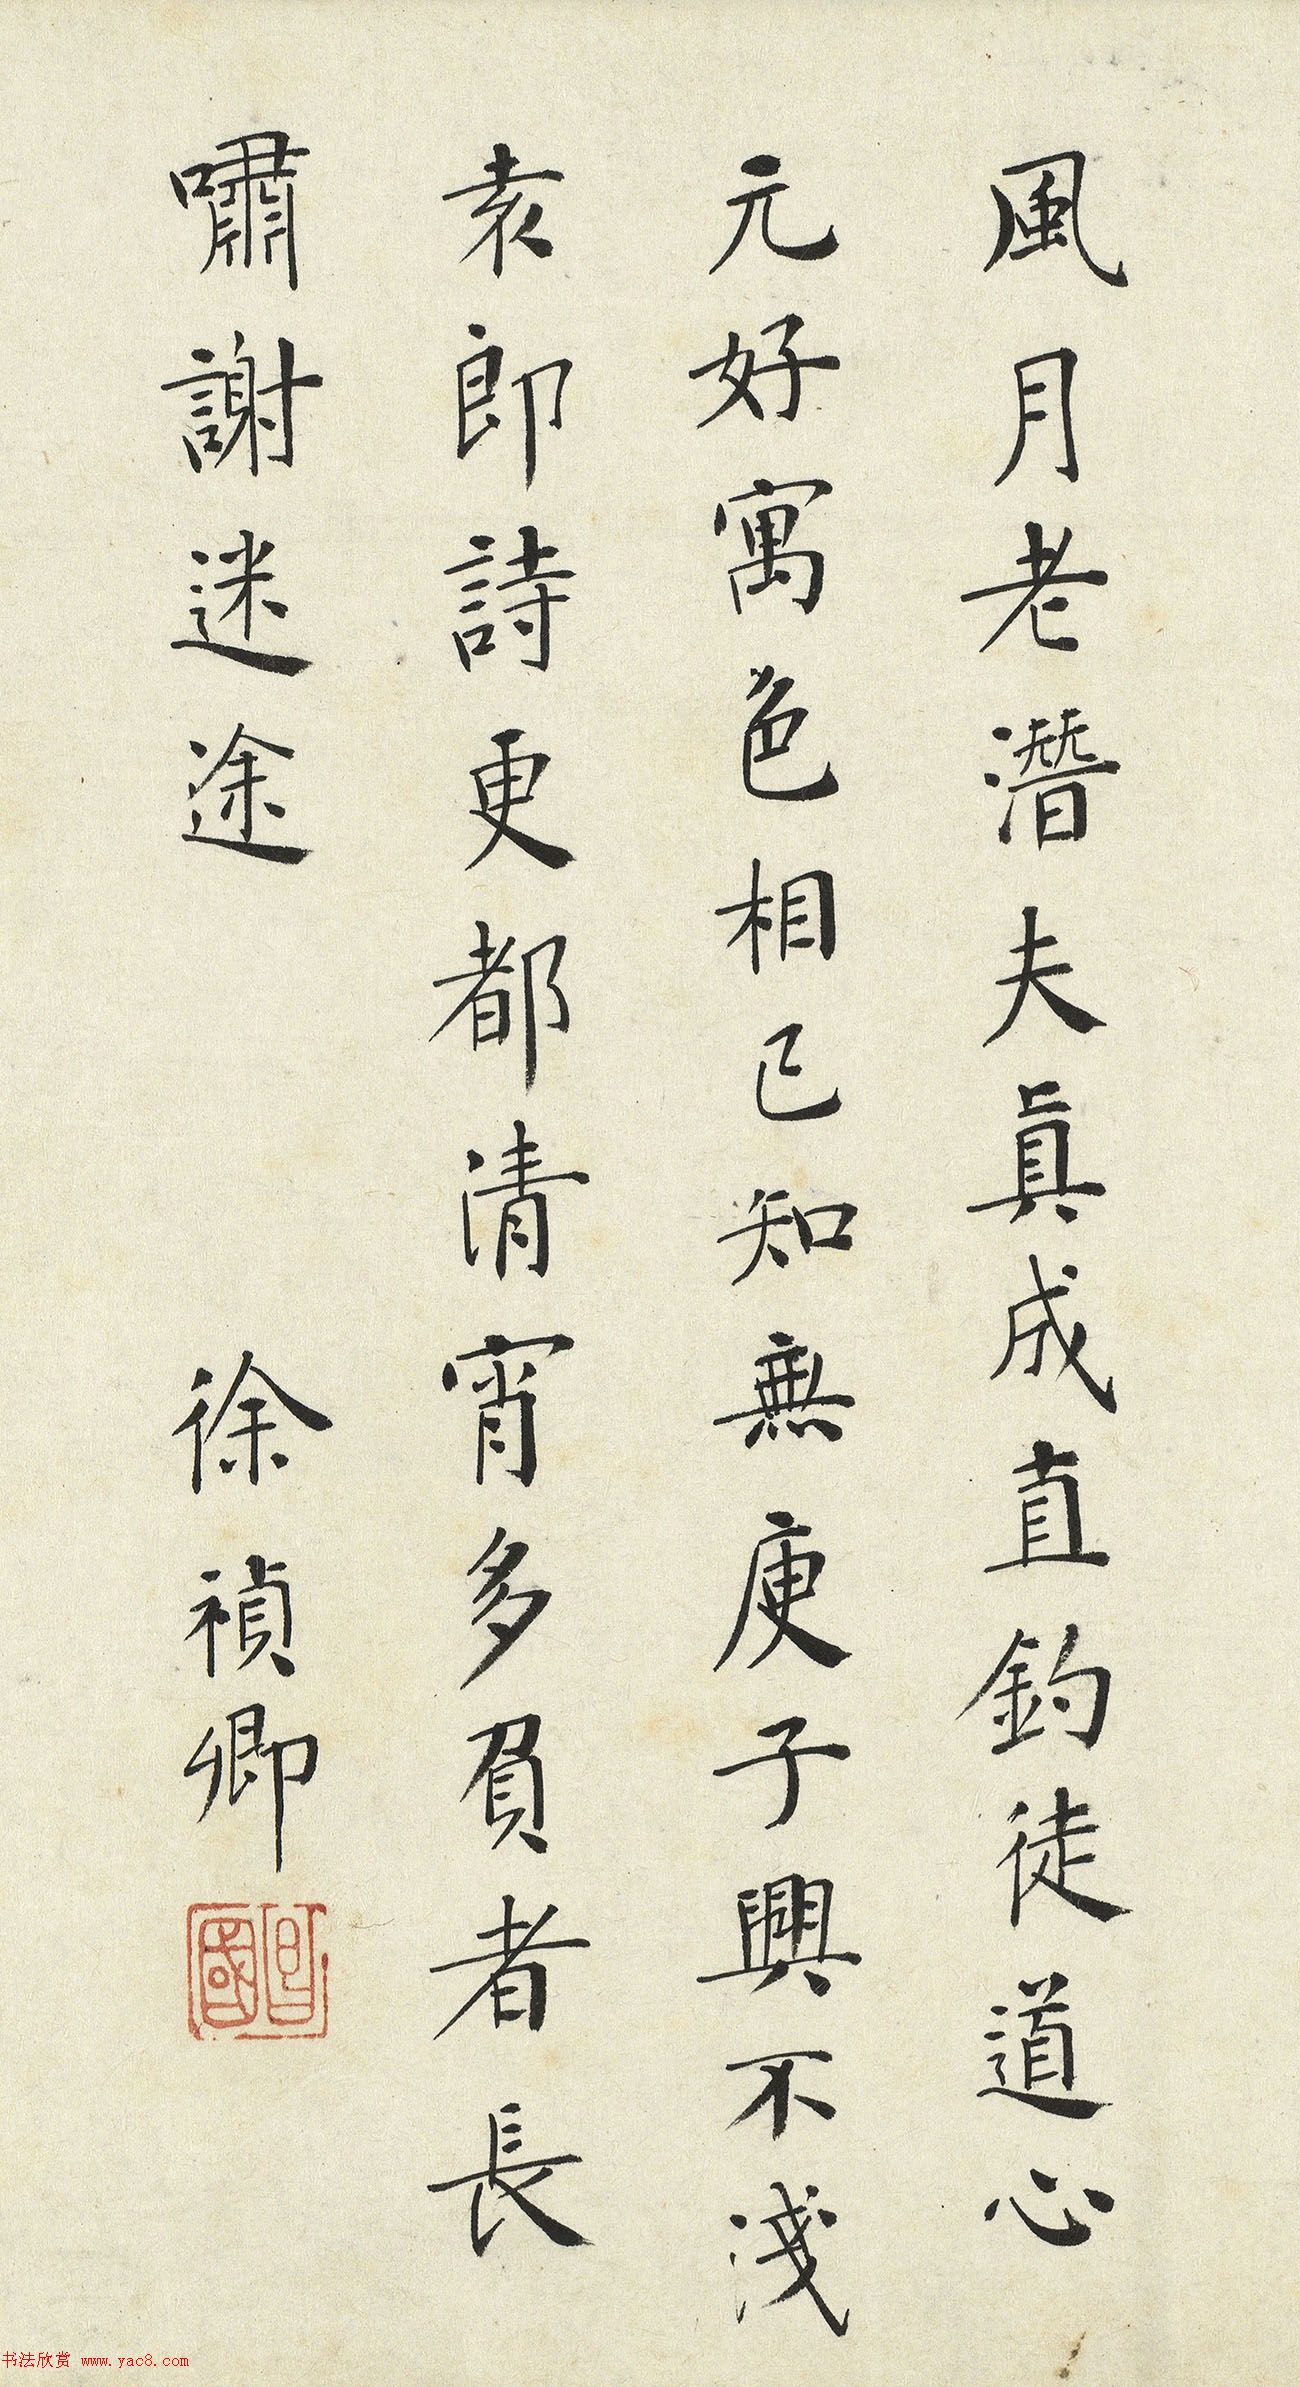 風月老潛夫真成直釣徒道心
元好寓色相已知無庾子興不淺
袁郎詩更都清宵多負者長
嘯謝迷途
徐禎卿
昌國
书法欣赏 www.yac8.com